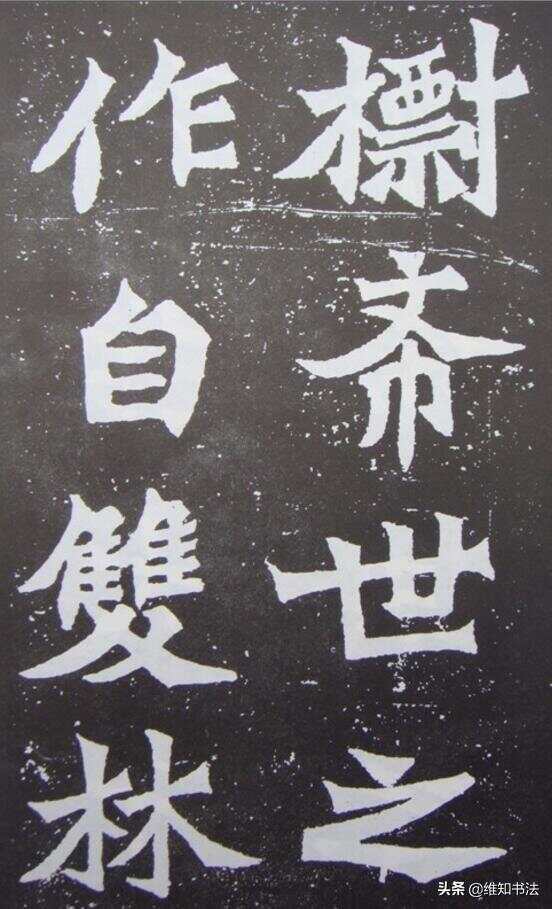 希世之
作自雙林
头条 @维知书法